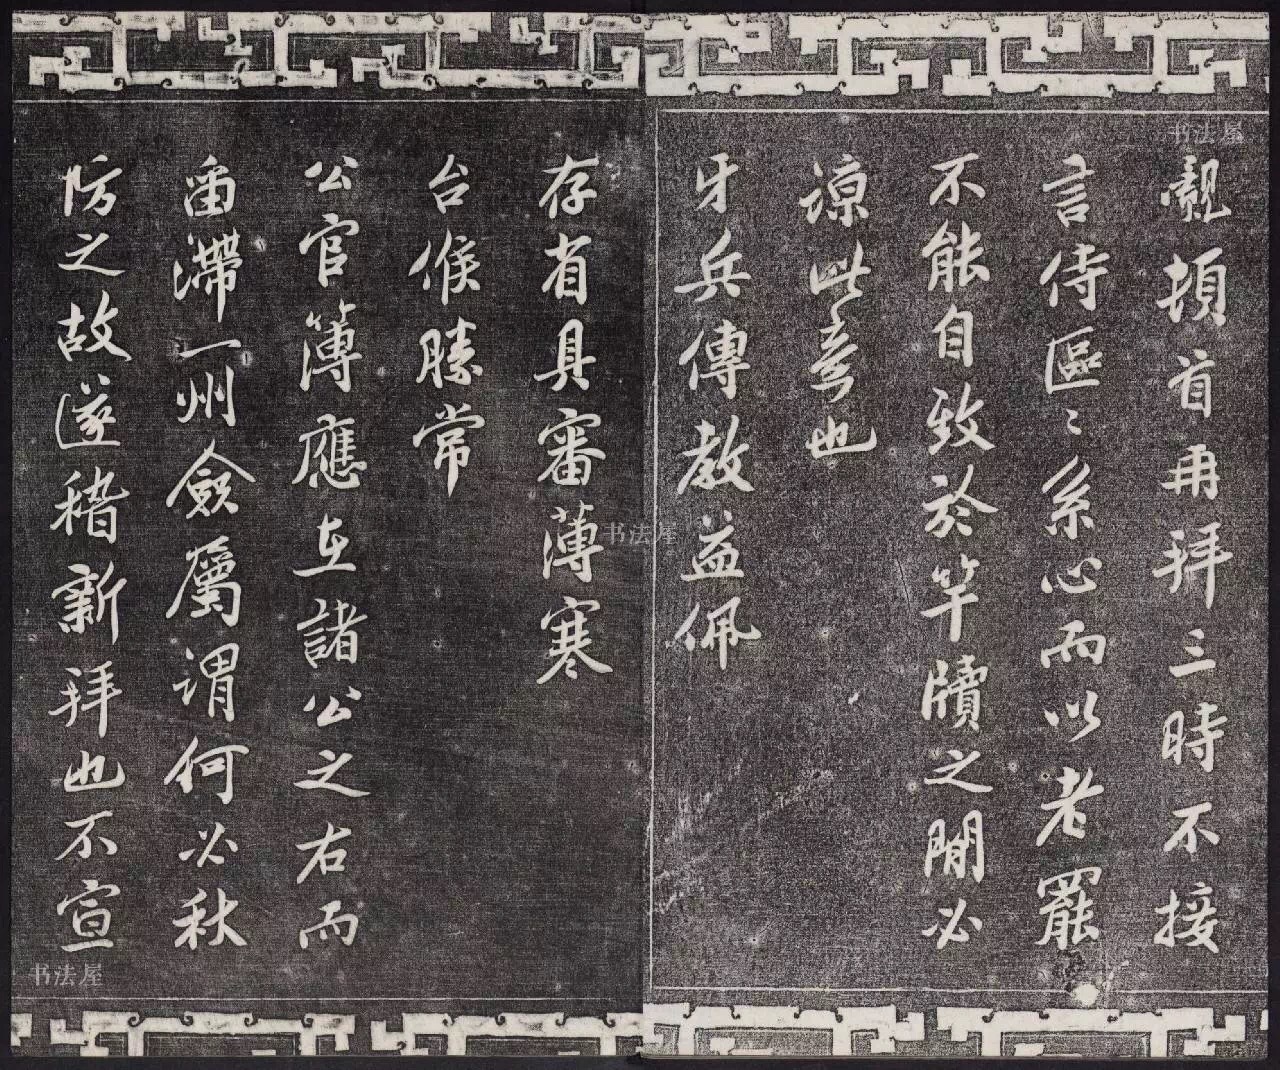 觌頓首再拜三時不接
言侍區〻系心而以老罷
不能自致於竿牘之間必
諒此意也
牙兵傳教益佩
存省具審薄寒
台候勝常
公官簿應在諸公之右而
留滯一州僉屬謂何必秋
防之故遂稽新拜也不宣
书法屋
书法屋
书法屋